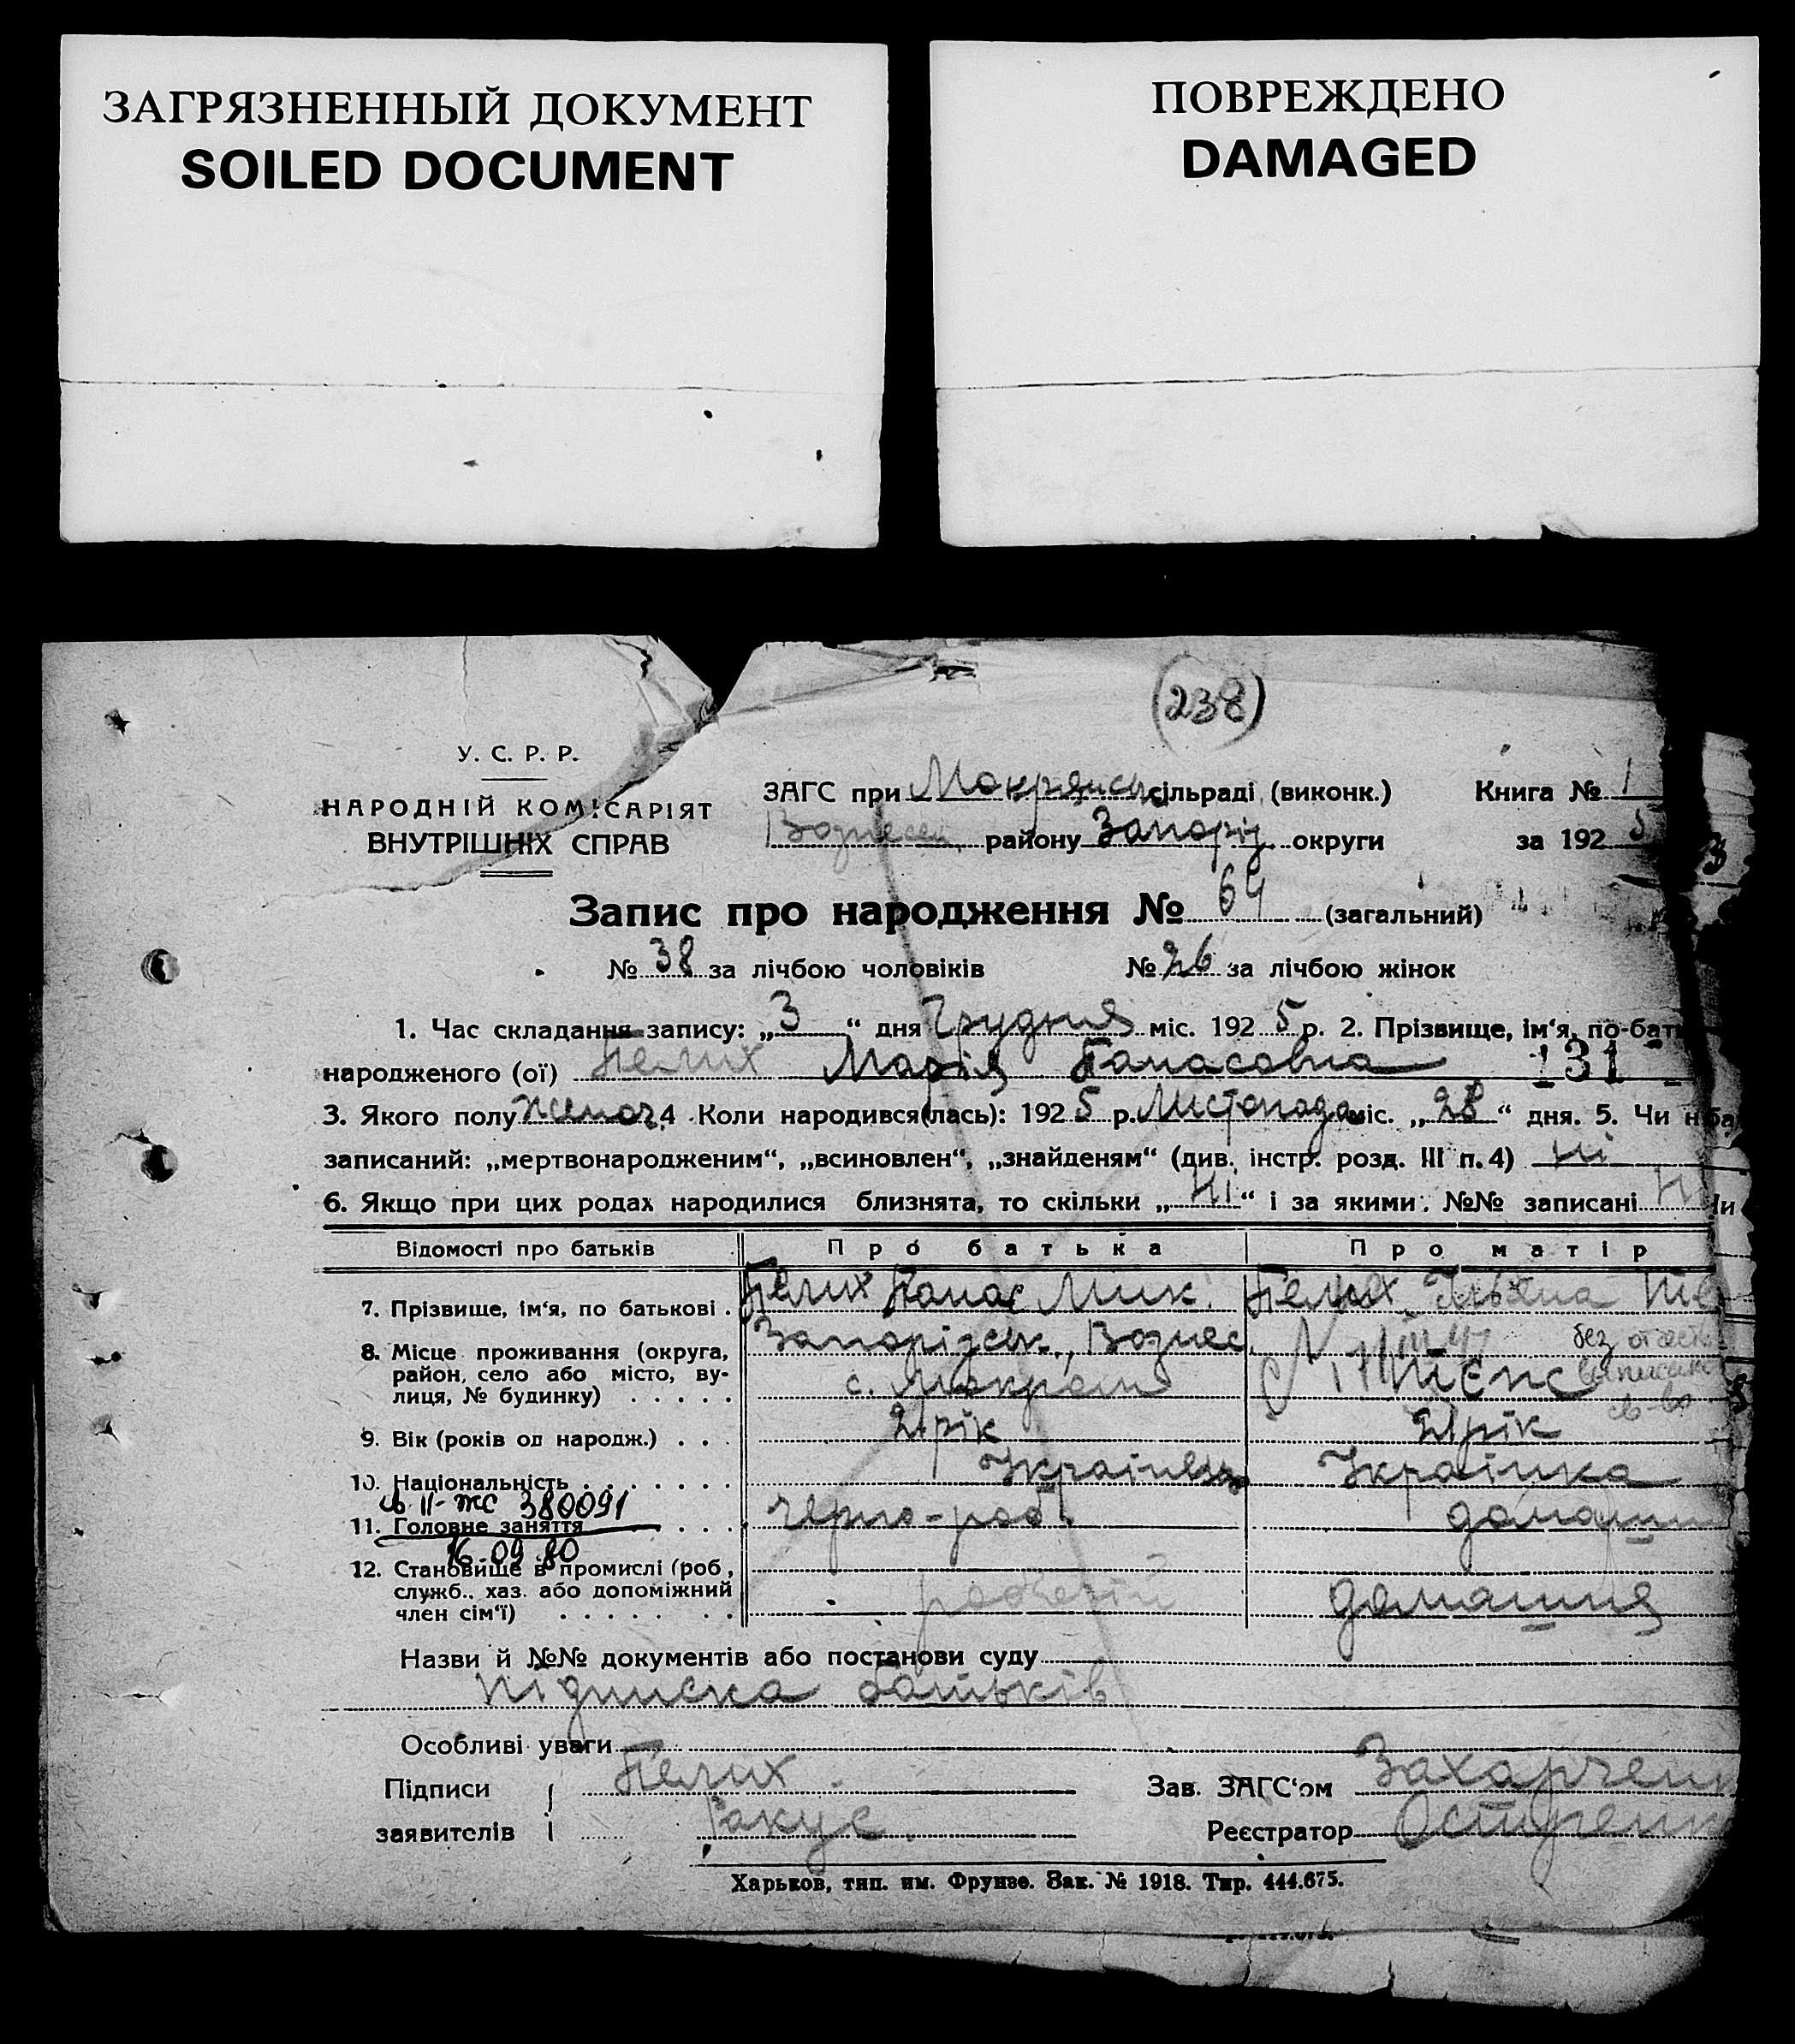 ЗАГРЯЗНЕННЫЙ ДОКУМЕНТ
SOILED DOCUMENT
ПОВРЕЖДЕНО
DAMAGED
(238)
У. С. Р. Р.
НАРОДНІЙ КОМІСАРІЯТ
ВНУТРІШНІХ СПРАВ
ЗАГС при сільраді (виконк.) Книга № 1
Вознесен. району Запоріз. округи за 192 5
Запис про народження № 64 (загальний)
№ 38 за лічбою чоловіків № 26 за лічбою жінок
1. Час складання запису: „ 3 “ дня Грудня міс. 192 5 р. 2. Прізвище, ім‘я, по-бат
народженого (ої) Белих Марія Панасовна 131
3. Якого полу жіноч. 4 Коли народився(лась): 192 5 р. Листопада міс. „ 28 “ дня. 5. Чи н
записаний: „мертвонародженим“, „всиновлен“, „знайденям“ (див. інстр. розд. III п. 4) ні
6. Якщо при цих родах народилися близнята, то скільки „ Ні “ і за якими №№ записані Ні
Відомості про батьків Про батька Про матір
7. Прізвище, ім‘я, по батькові . Белих Панас Мик. Белих
8. Місце проживання (округа, Запорізськ., Вознес. без
район, село або місто, ву-
лиця, № будинку) . . . . . с.
9. Вік (років од народж.) . . . 21 рік 21 рік
10. Національність . . . . . . . Українець Українка
св II-ЖС 380091
11. Головне заняття . . . чорно-роб. домашн
16-09-80
12. Становище в промислі (роб,
служб., хаз. або допоміжний робочий домашня
член сім‘ї) . . . . . . .
Назви й №№ документів або постанови суду
підписка батьків
Особливі уваги
Підписи Белих Зав. ЗАГС‘ом Захарченк
заявителів Ракус Реєстратор
Харьков, тип. им. Фрунзе. Зак. № 1918. Тир. 444.675.